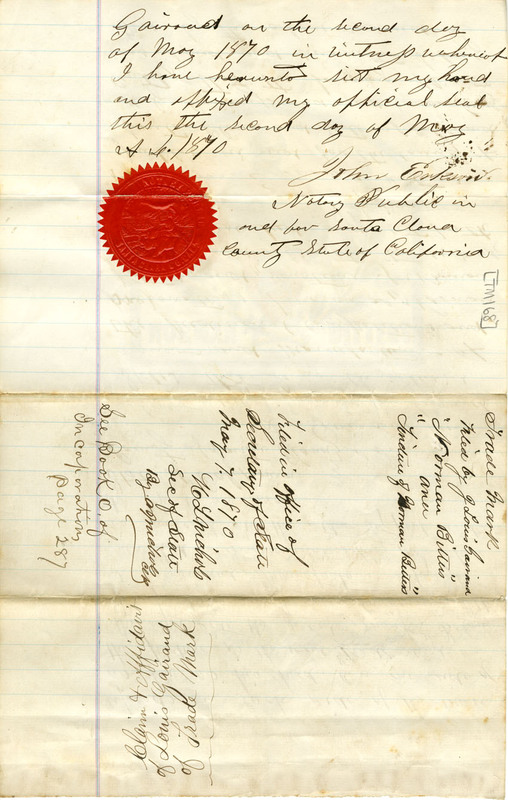 Gairaud on the second day
of May 1870 in witness whereof
I have hereunto set my hand
and affixed my official seal
this the second day of May
A. D. 1870
John
Notary Public in
and for Santa Clara
County State of California
[TM168]
Trade Mark
Filed by J. Louis Gairaud
"Norman Bitters"
and
"Indian of Norman Bitters"
Filed in office of
Secretary of State
May 7. 1870
H L Nichols
Sec of State
By
See Book O of
Incorporation
page 287
Claim & Affidavit
J Louis Gairaud
to Trade Mark